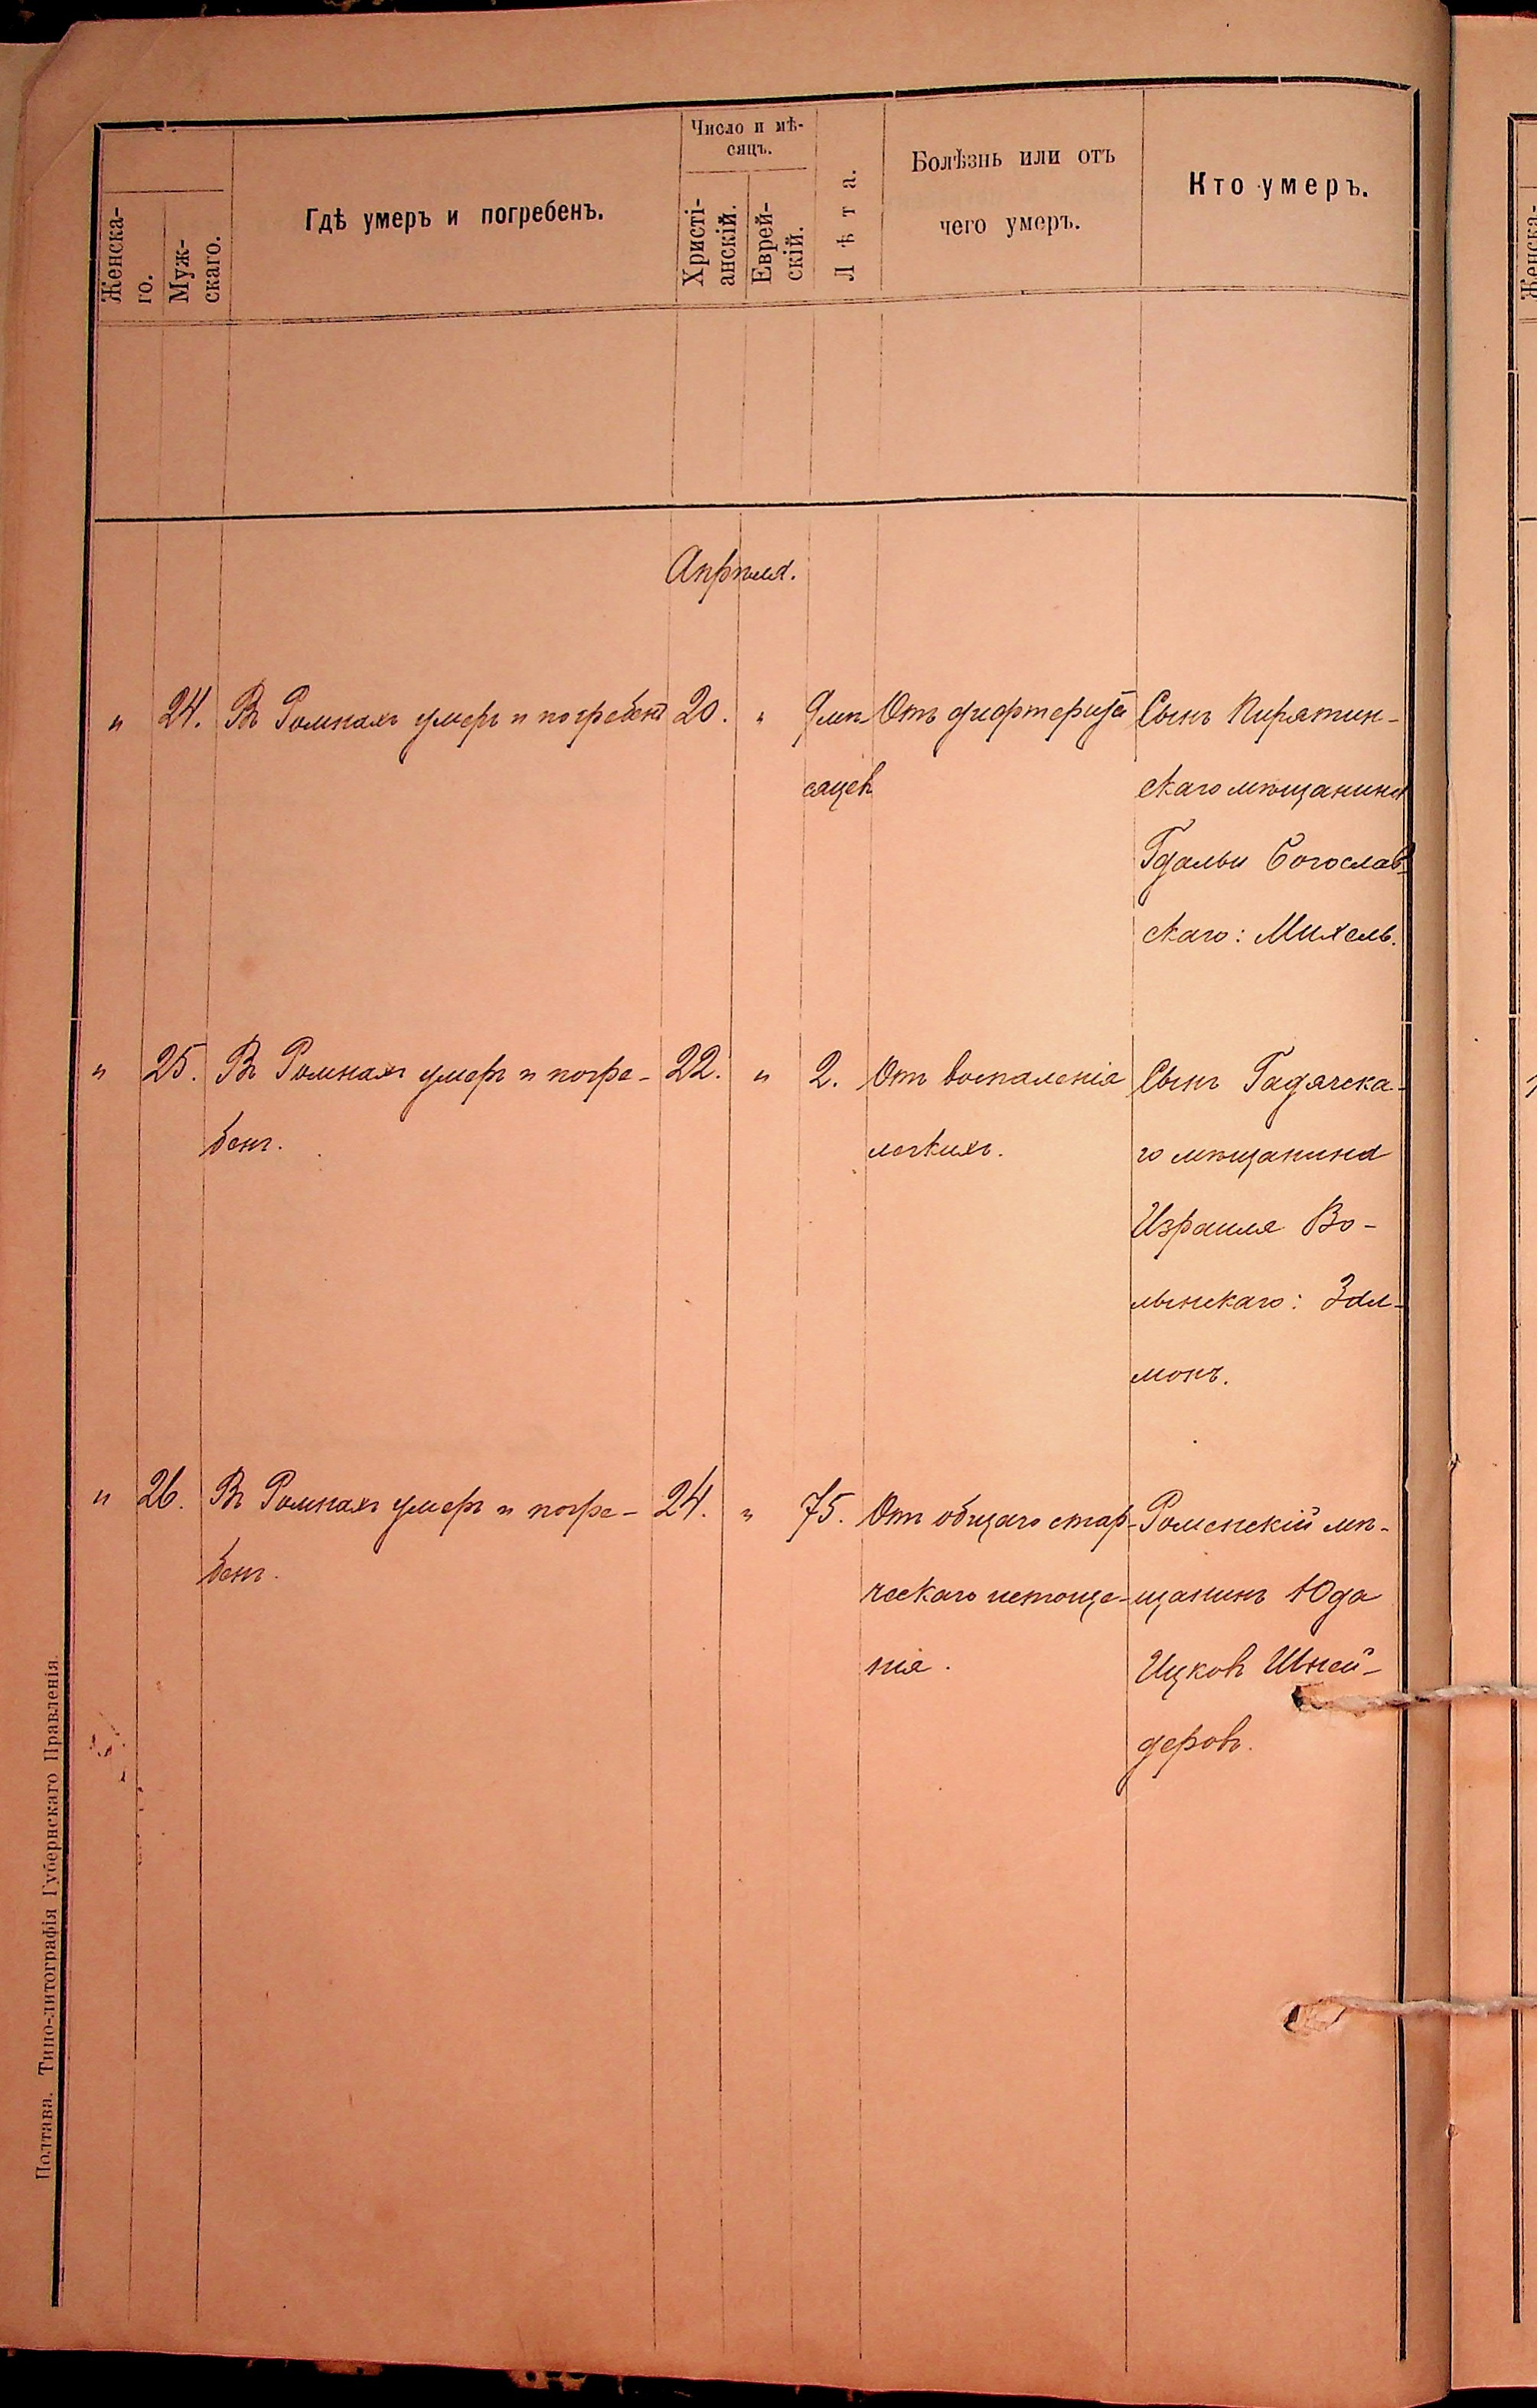 Женска-
го.
Муж-
скаго.
Гдѣ умеръ и погребенъ.
Число и мѣ-
сяцъ.
Христі-
анскій.
Еврей-
скій.
Лѣта.
Болѣзнь или отъ
чего умеръ.
Кто умеръ.
Апрѣля.
" 24. Въ Ромнахъ умеръ и погребенъ 20. " 9 мѣ- Отъ дифтерита Сынъ Пирятин-
сяцев скаго мѣщанина
Гдальи Богослав-
скаго: Михель.
" 25. Въ Ромнахъ умеръ и погре- 22. " 2. Отъ воспаленія Сынъ Гадячска-
бенъ. легкихъ. го мѣщанина
Израиля Во-
лынскаго: Зал-
монъ.
" 26. Въ Ромнахъ умеръ и погре- 24. " 75. Отъ общаго стар- Роменскій мѣ-
бенъ. ческаго истоще- щанинъ Юда
нія. Ицковъ Шней-
деровъ.
Полтава. Типо-литографія Губернскаго Правленія.
Женска-